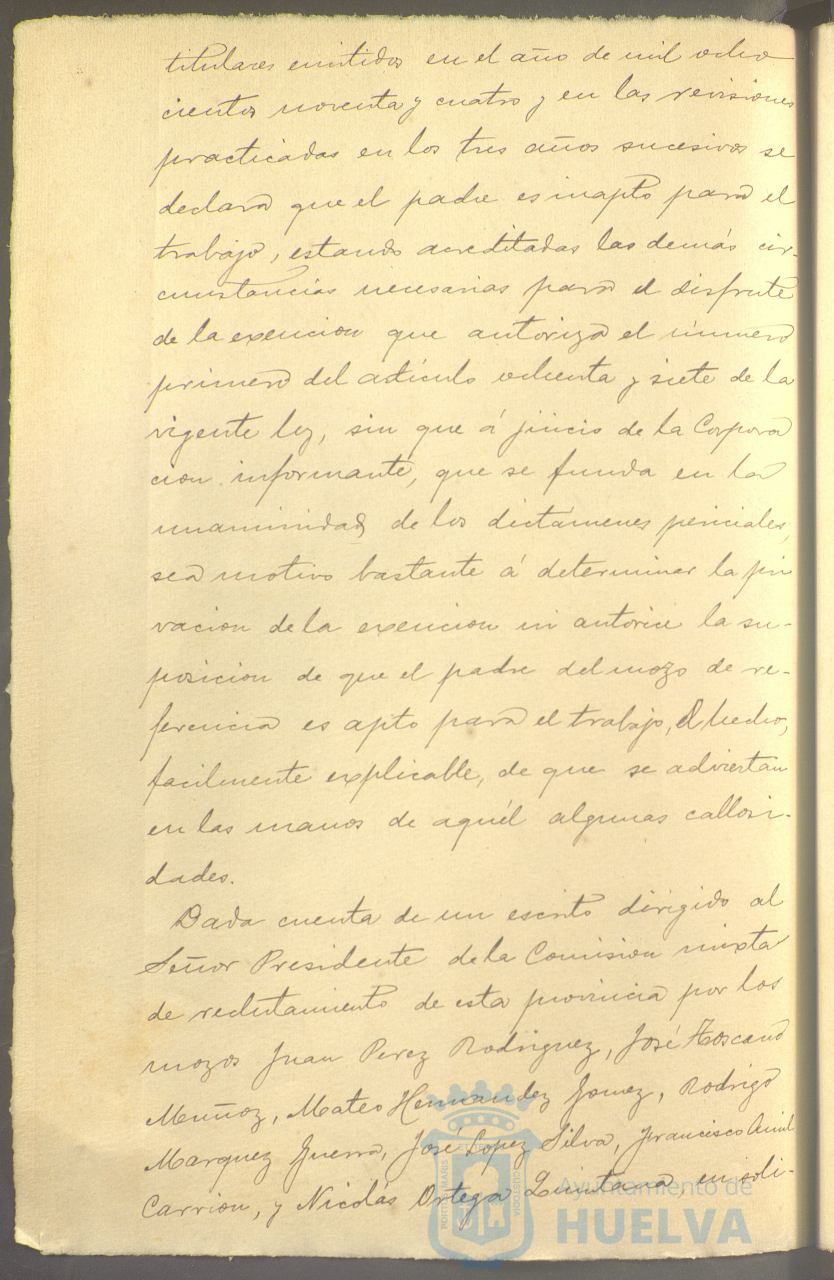 titulares emitidos en el año de mil ocho
cientos noventa y cuatro y en las revisiones
practicadas en los tres años sucesivos se
declara que el padre es inapto para el
trabajo, estando acreditadas las demás cir-
cunstancias necesarias para el disfrute
de la exencion que autoriza el número
primero del artículo ochenta y siete de la
vigente ley, sin que á juicio de la Corpora
cion informante, que se funda en la
unanimidad de los dictámenes periciales,
sea motivo bastante á determinar la pri
vacion de la exencion ni autorice la su-
posicion de que el padre del mozo de re-
ferencia es apto para el trabajo, el hecho,
facilmente explicable, de que se adviertan
en las manos de aquél algunas callosi-
dades.
Dada cuenta de un escrito dirigido al
Señor Presidente de la Comision mixta
de reclutamiento de esta provincia por los
mozos Juan Perez Rodriguez, José Toscano
Muñoz, Mateo Hernandez Gomez, Rodrigo
Marquez Guerra, José Lopez Silva, Francisco
Carrion, y Nicolás Ortega Quintana, en soli-
Ayuntamiento de
HUELVA